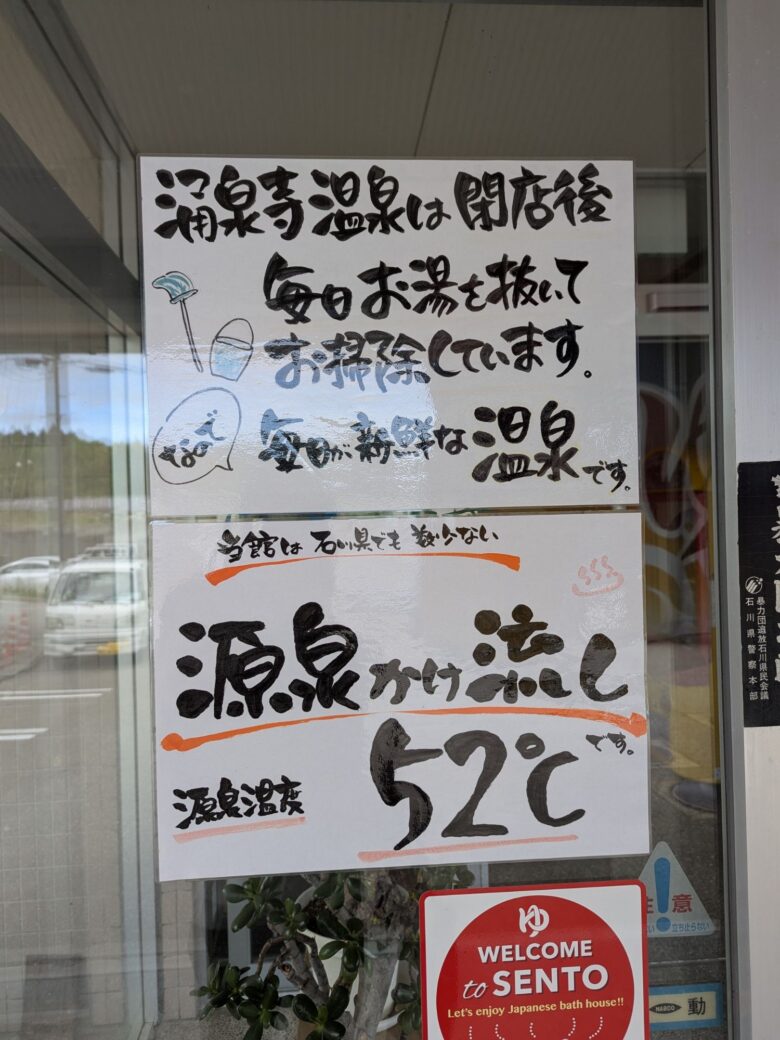 涌泉寺温泉は閉店後
毎日お湯を抜いて
お掃除しています。
なので
毎日が新鮮な温泉です。
当館は石川県でも数少ない
源泉かけ流し
です。
源泉温度
52℃
ゆ
WELCOME
to SENTO
Let's enjoy Japanese bath house!!
注意
立ち止らない
NABCO
動
暴力団追放石川県民会議
石川県警察本部